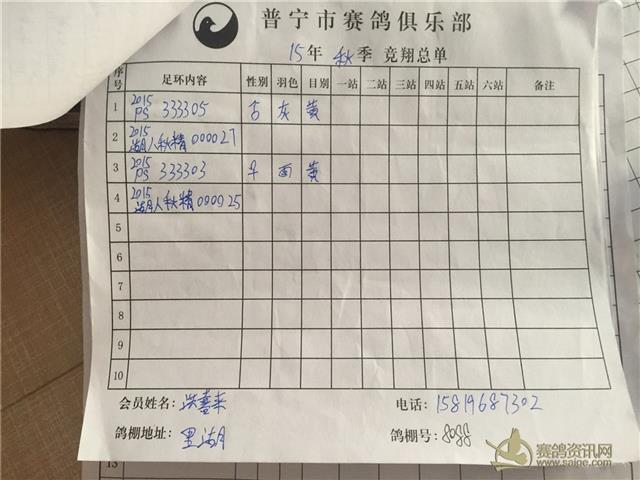 普宁市赛鸽俱乐部
15年 秋季 竞翔总单
序号 足环内容 性别 羽色 目别 一站 二站 三站 四站 五站 六站 备注
1 2015 PS 333305 灰 黄
2 2015 湖人秋精 000027
3 2015 PS 333303 面 黄
4 2015 湖人秋精 000025
5
6
7
8
9
10
会员姓名: 洪喜来 电话: 15819687302
鸽棚地址: 里湖 鸽棚号: 8088
13
赛鸽资讯网
www.saige.com